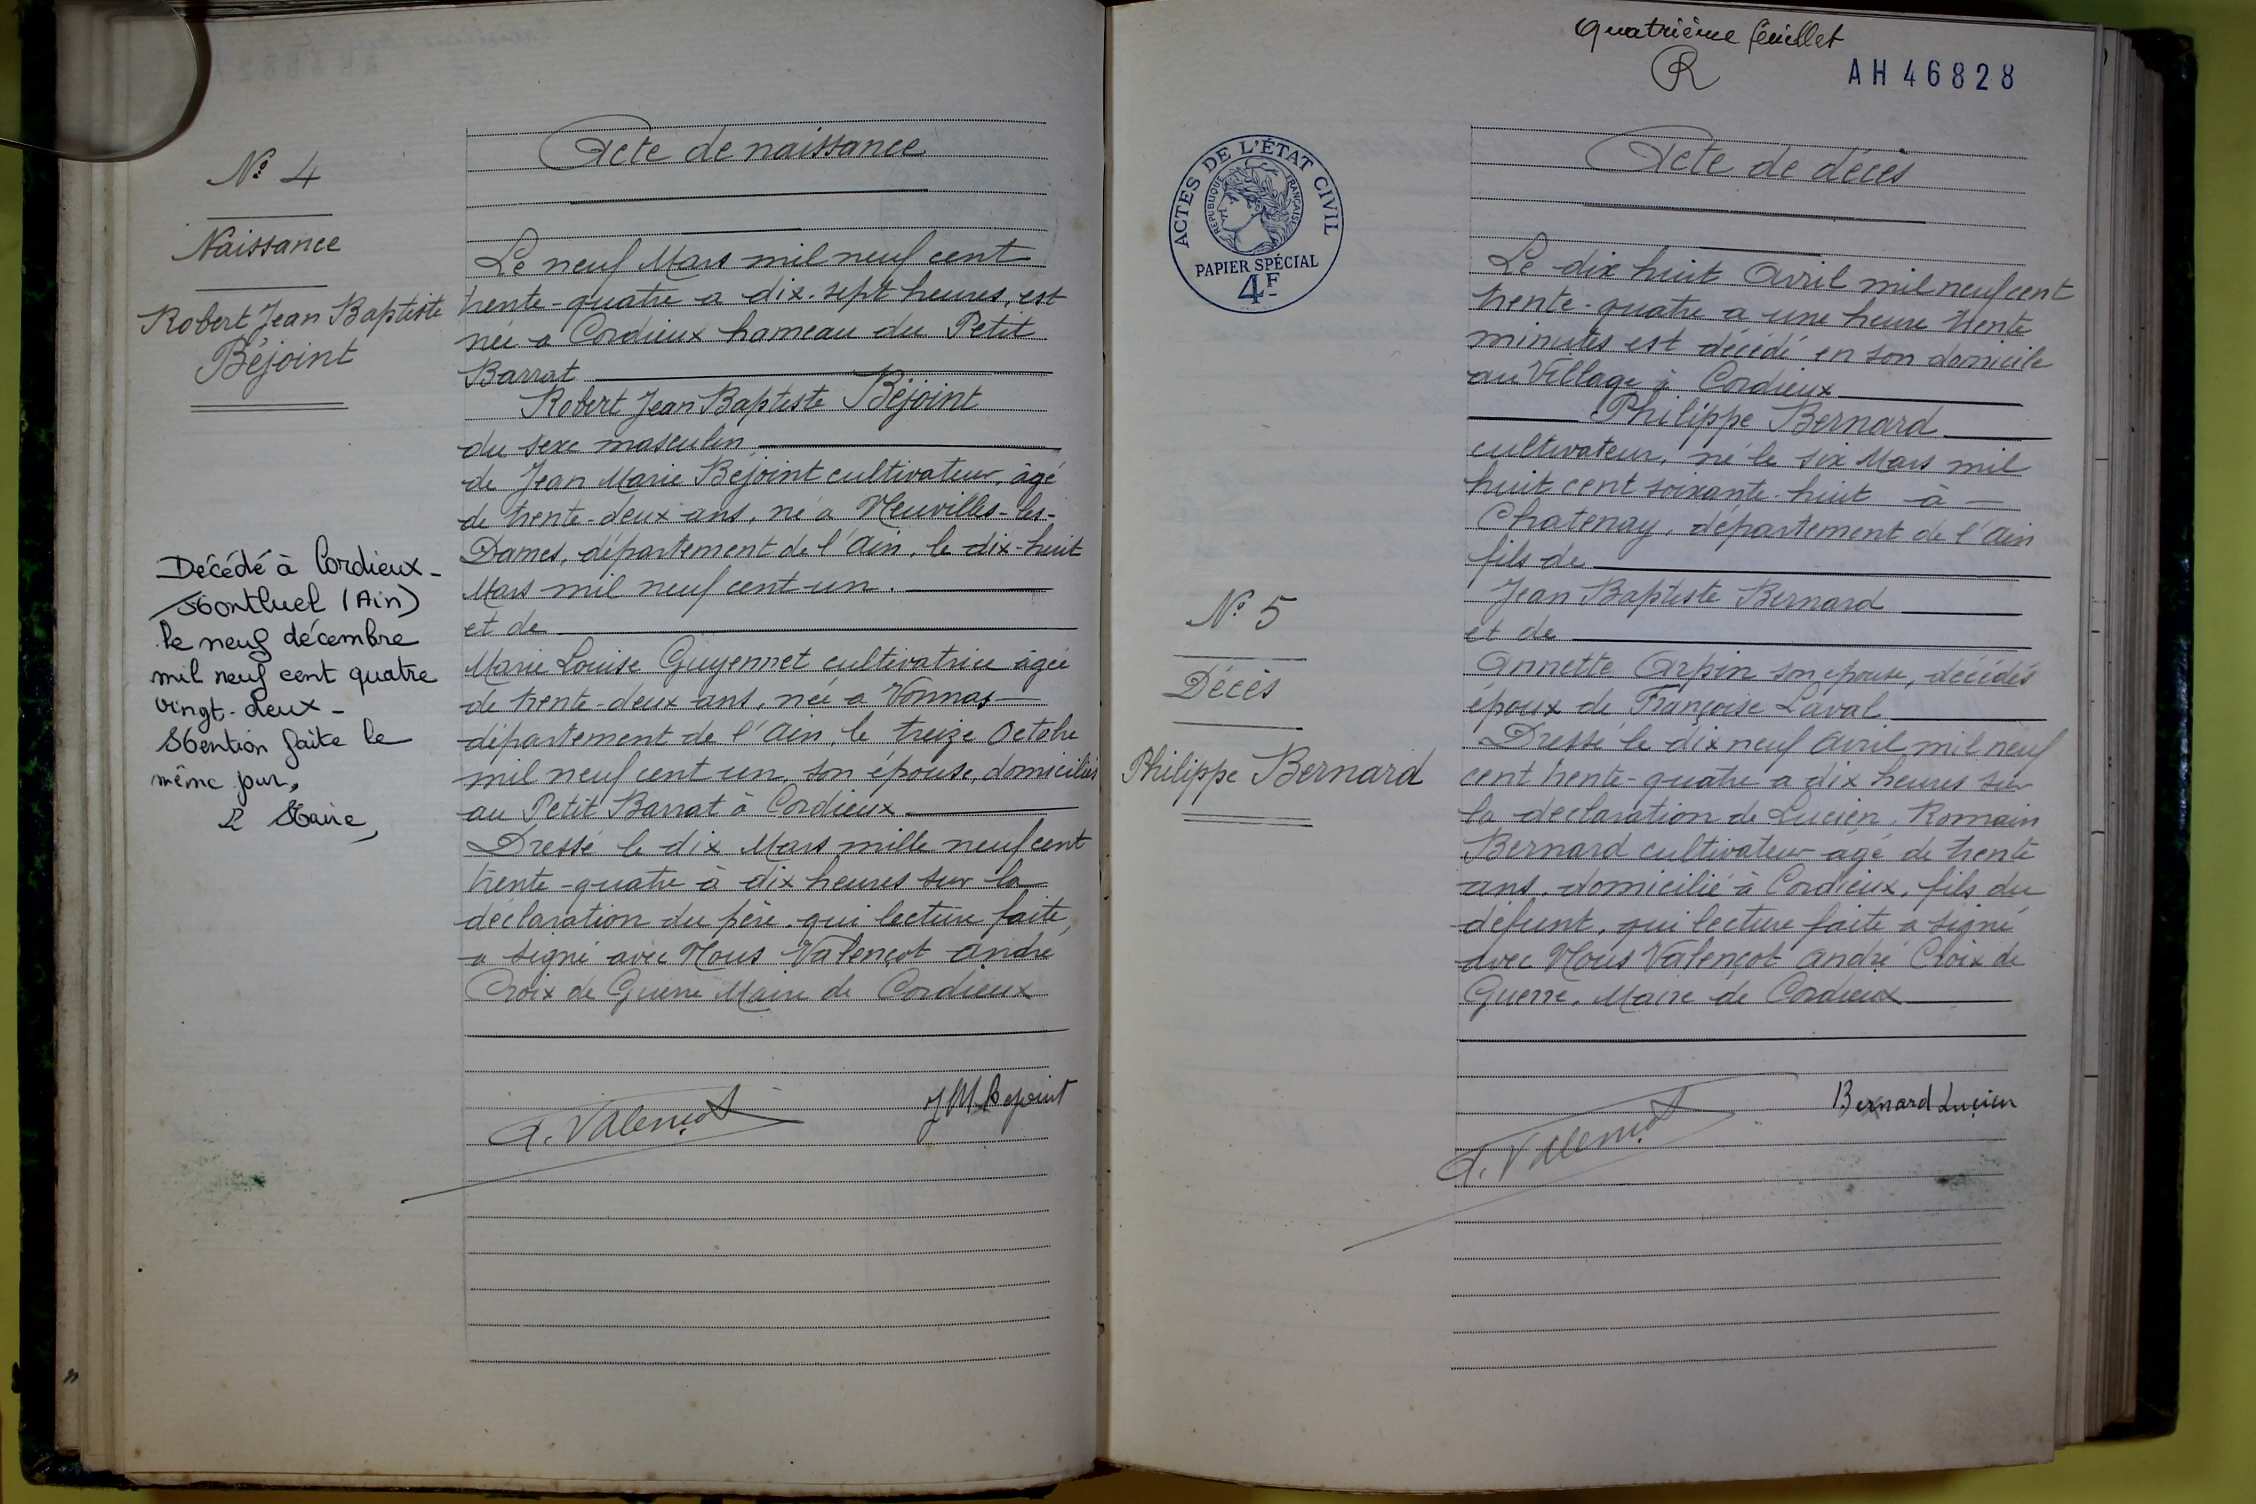 Nº 4
Naissance
Robert Jean Baptiste
Béjoint
Décédé à Cordieux-
Montluel (Ain)
le neuf décembre
mil neuf cent quatre
vingt-deux-
Mention faite le
même jour,
Le Maire,
Acte de naissance
Le neuf Mars mil neuf cent
trente-quatre a dix-sept heures, est
née a Cordieux hameau du Petit
Barrat
Robert Jean Baptiste Béjoint
du sexe masculin
de Jean Marie Béjoint cultivateur, âgé
de trente-deux ans, né a Neuvilles-les-
Dames, département de l'Ain, le dix-huit
Mars mil neuf cent un.
et de
Marie Louise Guyennet cultivatrice âgée
de trente-deux ans, née a Vonnas
département de l'Ain, le treize Octobre
mil neuf cent un, son épouse, domiciliés
au Petit Barrat à Cordieux
Dressé le dix Mars mille neuf cent
trente-quatre à dix heures sur la
déclaration du père, qui lecture faite,
a signé avec Nous Valençot André
Croix de Guerre Maire de Cordieux
A. Valençot
J M Bejoint
quatrième feuillet
R
AH46828
ACTES DE L'ÉTAT CIVIL
RÉPUBLIQUE FRANÇAISE
PAPIER SPÉCIAL
4F
Nº 5
Décès
Philippe Bernard
Acte de décès
Le dix huit Avril mil neuf cent
trente-quatre a une heure trente
minutes est décédé en son domicile
au Village à Cordieux
Philippe Bernard
cultivateur, né le six Mars mil
huit cent soixante-huit à
Chatenay, département de l'Ain
fils de
Jean Baptiste Bernard
et de
Annette Arpin son épouse, décédés
époux de Françoise Laval
Dressé le dix neuf Avril mil neuf
cent trente-quatre a dix heures sur
la déclaration de Lucien, Romain
Bernard cultivateur âgé de trente
ans, domicilié à Cordieux, fils du
défunt, qui lecture faite a signé
avec Nous Valençot André Croix de
Guerre, Maire de Cordieux
A. Valençot
Bernard Lucien